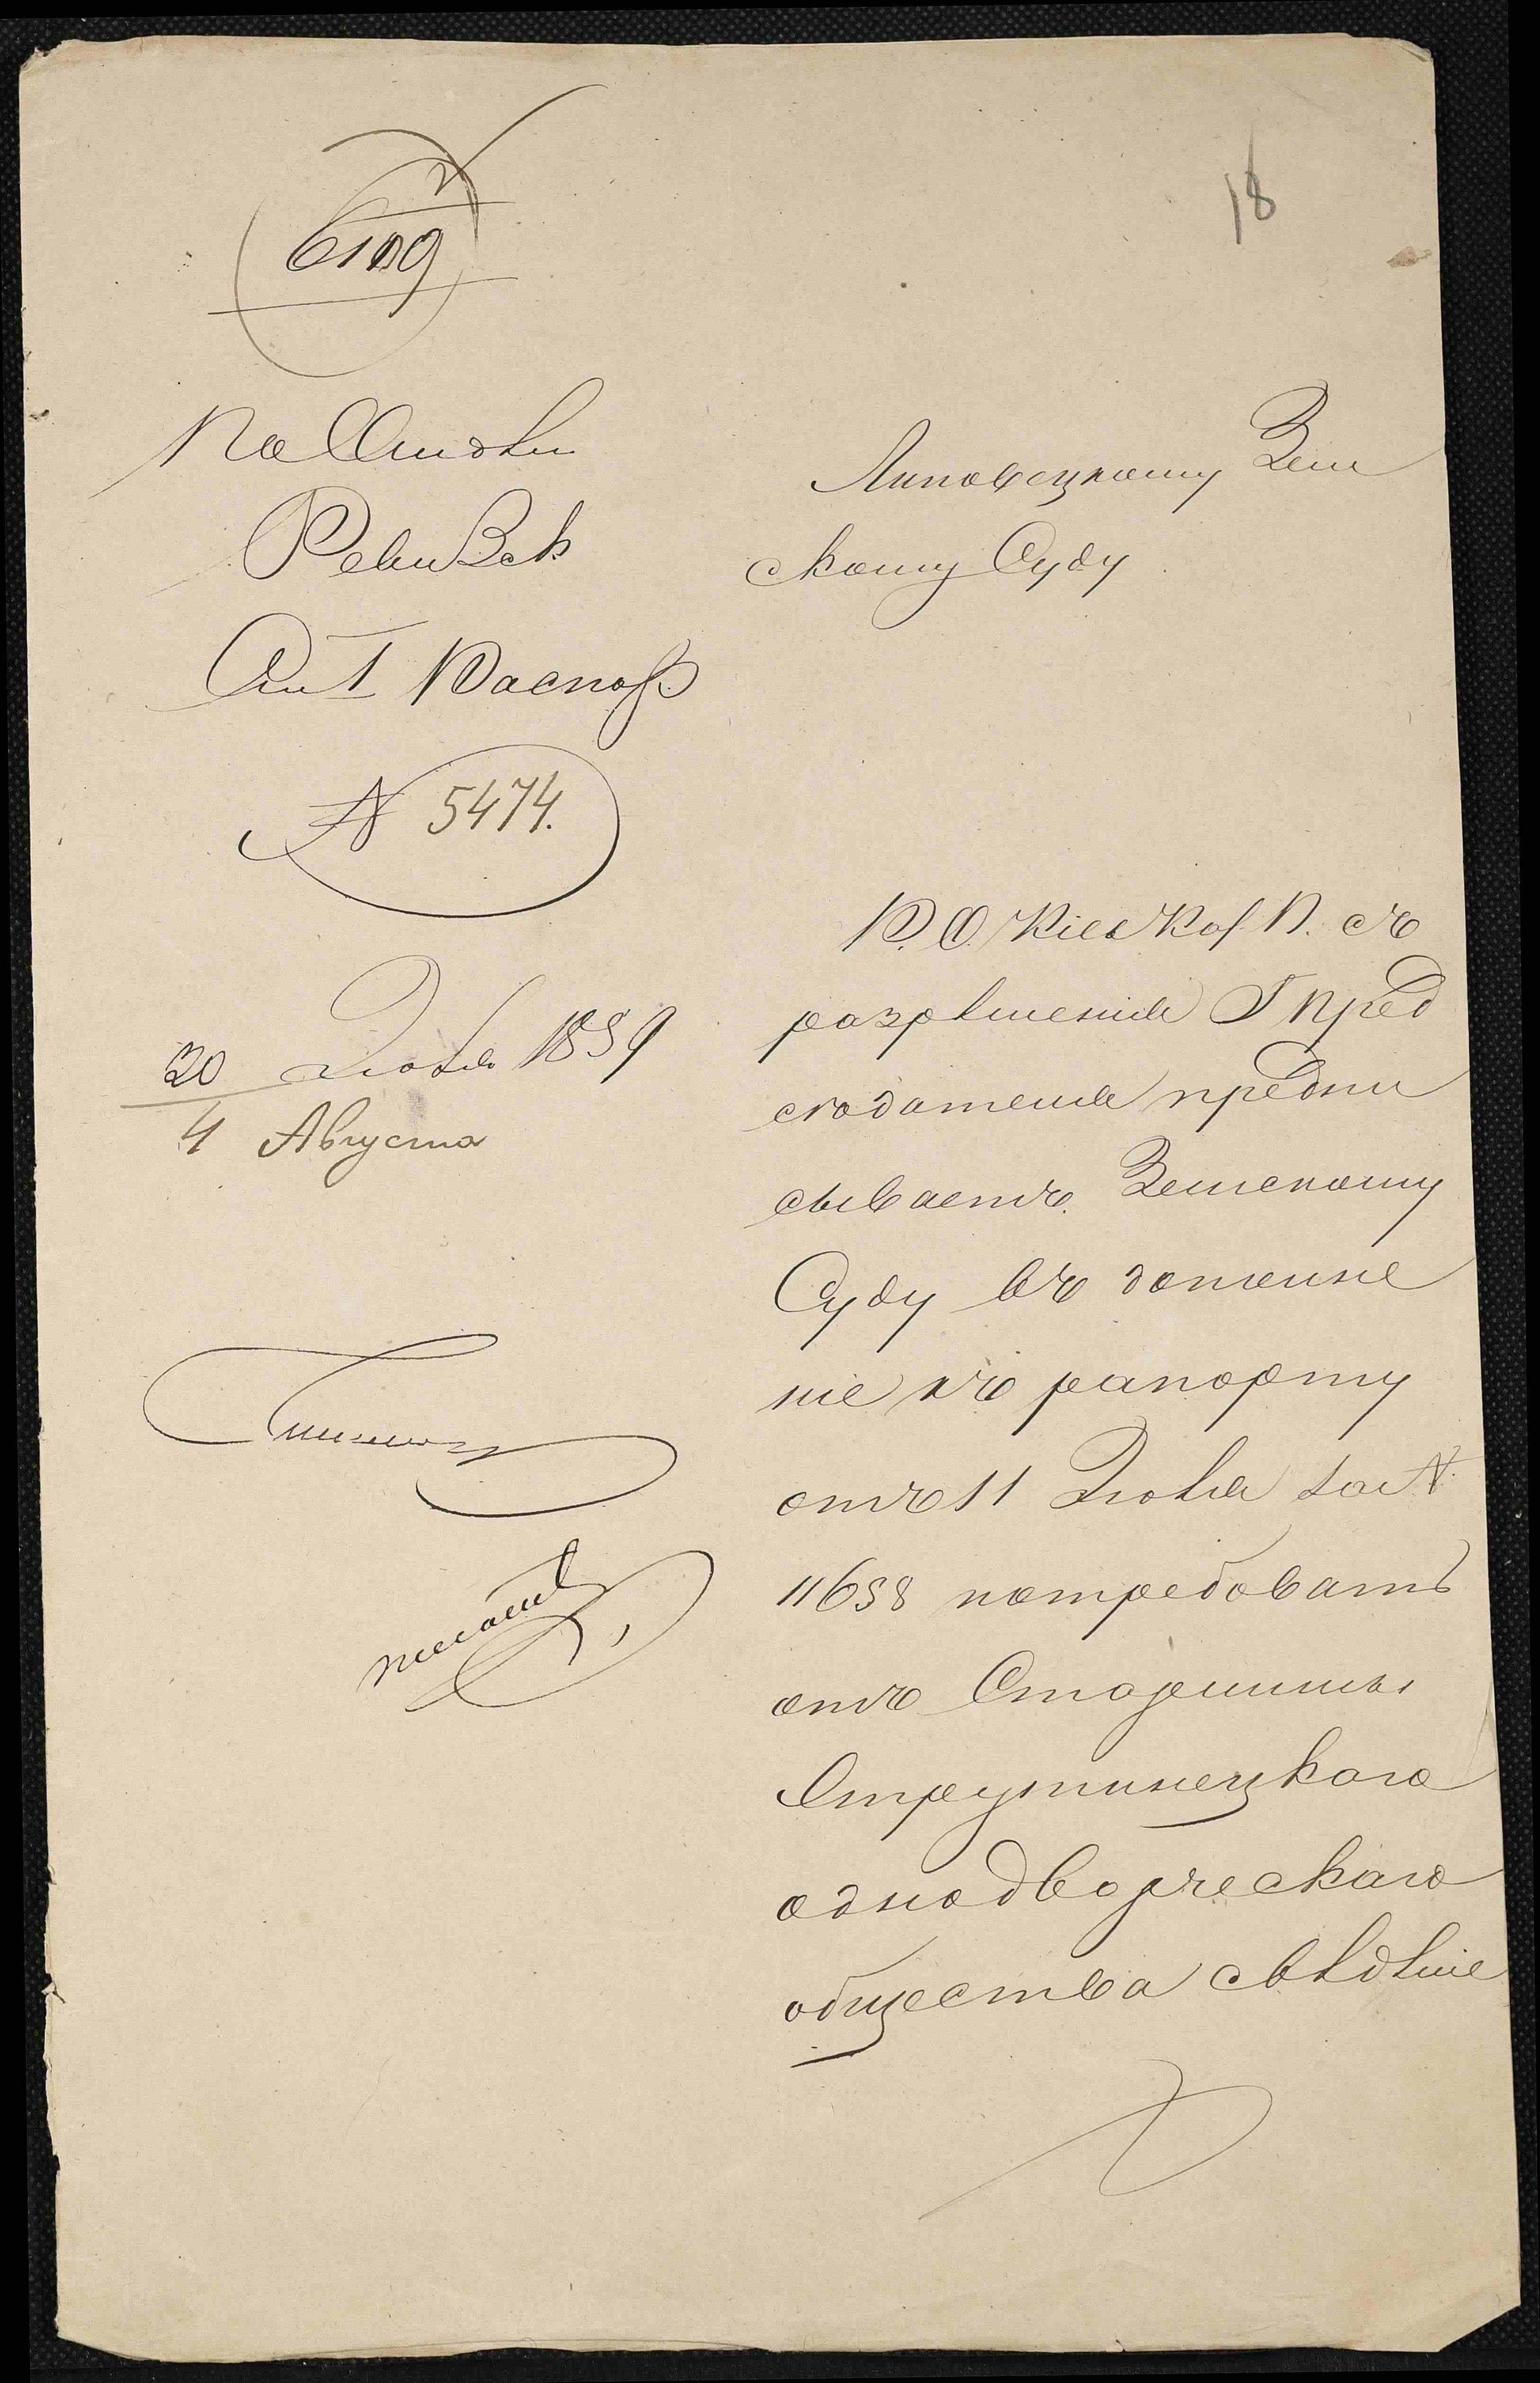 18
6109
По Отдѣл
Ревизск
Ст 1 Распор
№ 5474.
30 Іюля 1859
4 Августа
Липовецкому Зем
скому Суду
К. О. Кіев Каз. П. съ
разрѣшенія Г Пред
сѣдателя предпи
сываетъ Земскому
Суду въ дополне
ніе къ рапорту
отъ 11 Іюля за №
11658 потребовать
отъ Старшины
Струтинецкаго
однодворческаго
общества свѣдѣніе